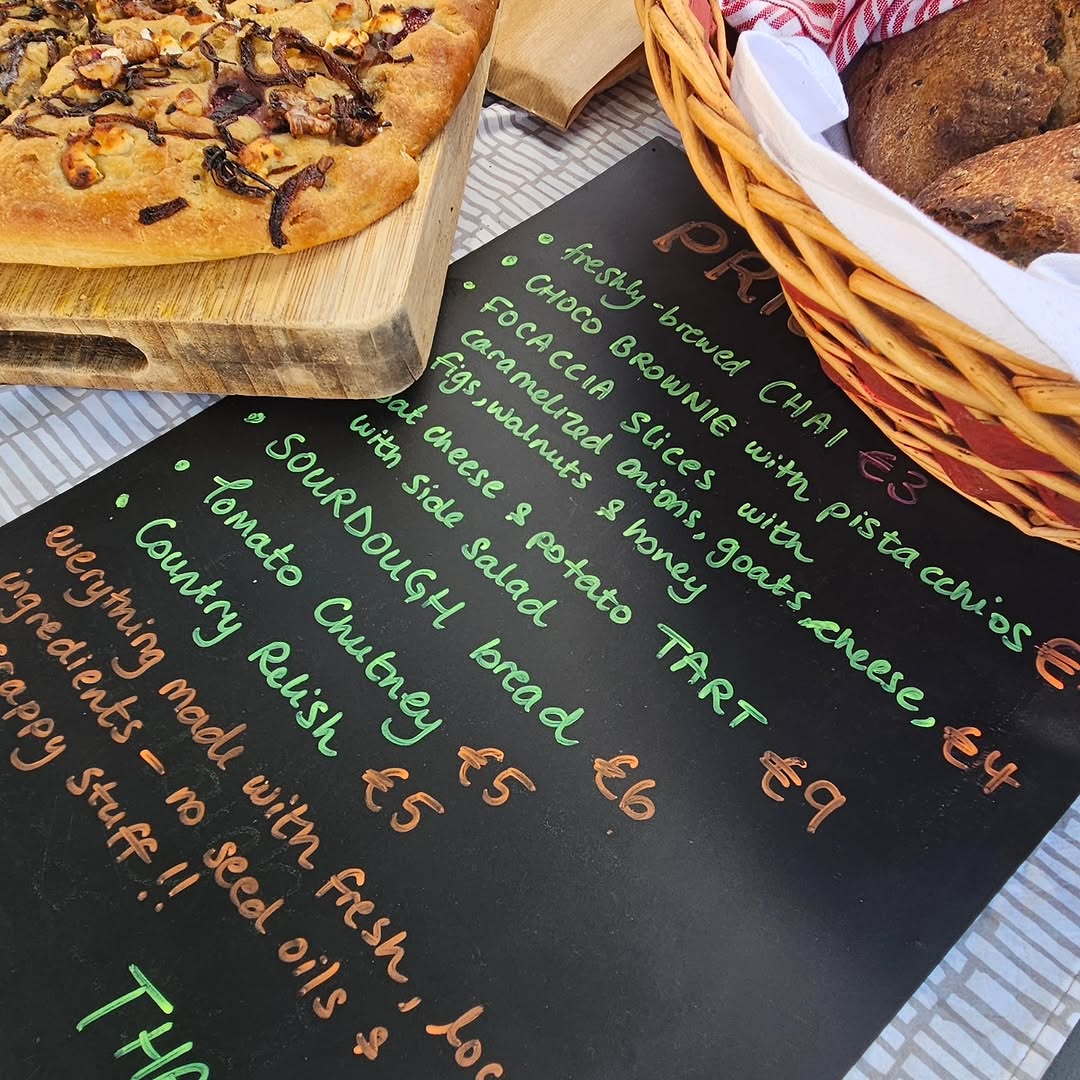 PRI
• freshly-brewed CHAI €3
• CHOCO BROWNIE with pistacchios €
• FOCACCIA slices with
caramelized onions, goats cheese,
figs, walnuts & honey €4
oat cheese & potato TART
with side salad €9
• SOURDOUGH bread €6
• Tomato Chutney €5
• Country Relish €5
everything made with fresh, loc
ingredients - no seed oils &
rappy stuff!!
TH